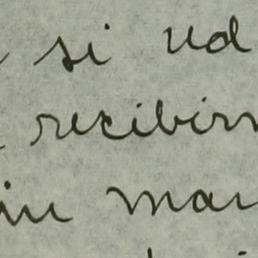 si Ud
recibirm
in mar